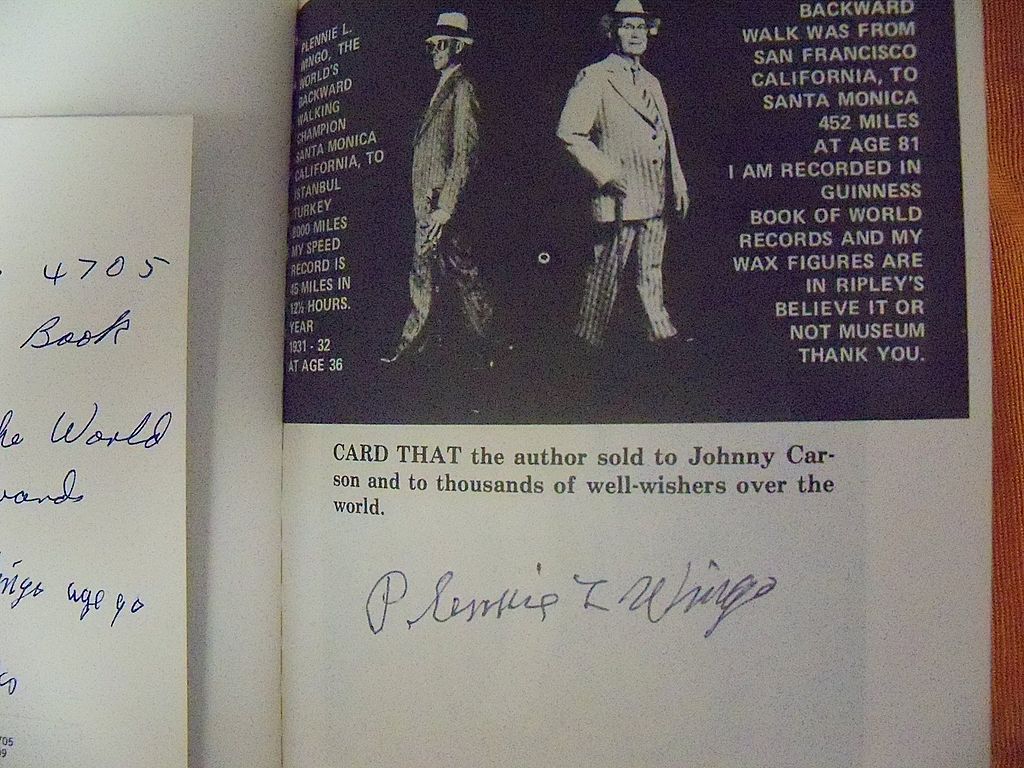 4705
Book
he World
wards
ingo age 90
705
9
PLENNIE L.
WINGO, THE
WORLD'S
BACKWARD
WALKING
CHAMPION
SANTA MONICA
CALIFORNIA, TO
ISTANBUL
TURKEY
8000 MILES
MY SPEED
RECORD IS
45 MILES IN
12½ HOURS.
YEAR
1931 - 32
AT AGE 36
BACKWARD
WALK WAS FROM
SAN FRANCISCO
CALIFORNIA, TO
SANTA MONICA
452 MILES
AT AGE 81
I AM RECORDED IN
GUINNESS
BOOK OF WORLD
RECORDS AND MY
WAX FIGURES ARE
IN RIPLEY'S
BELIEVE IT OR
NOT MUSEUM
THANK YOU.
CARD THAT the author sold to Johnny Car-
son and to thousands of well-wishers over the
world.
Plennie L Wingo